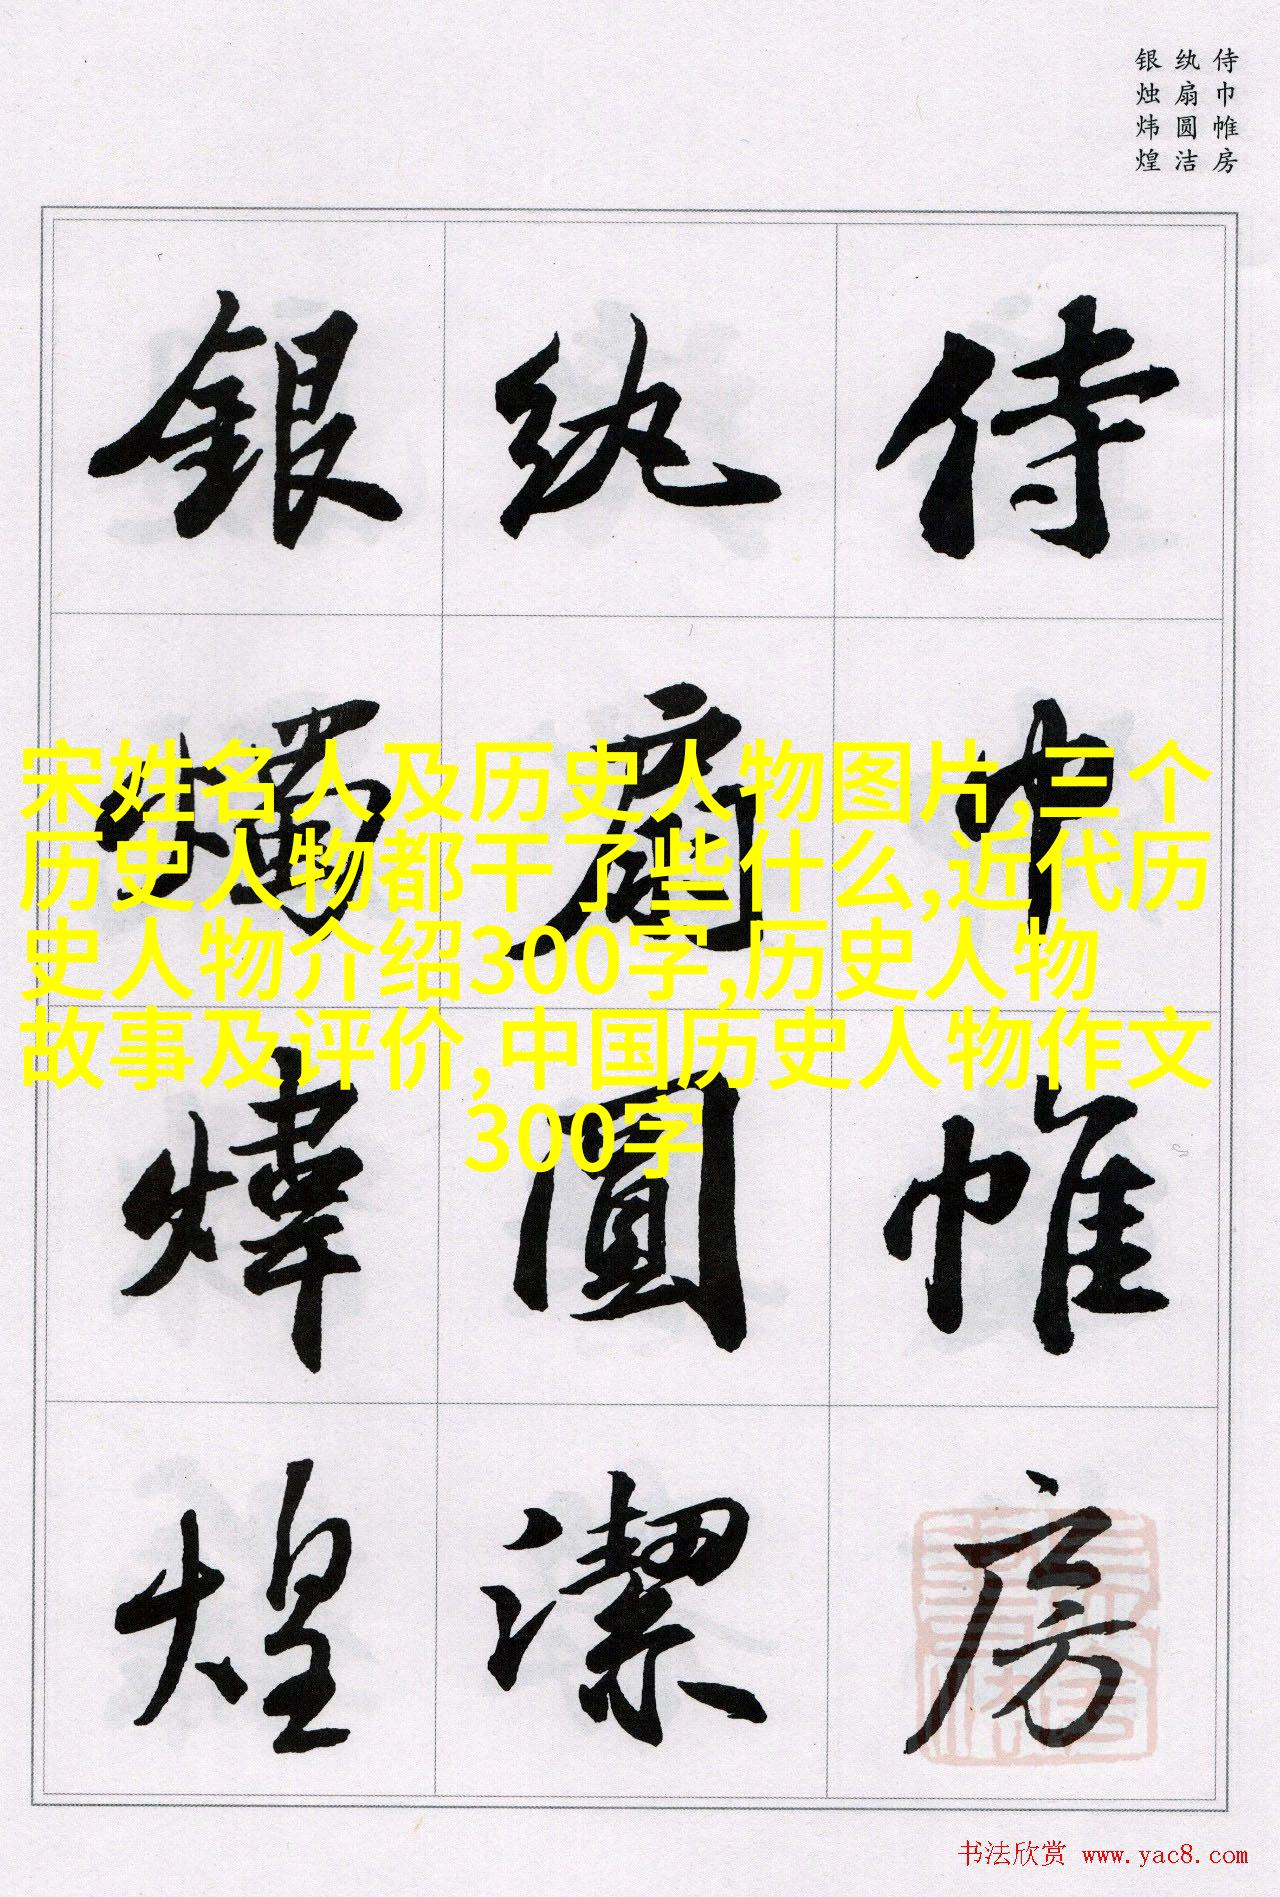 侍巾帷房
纨扇圆洁
银烛炜煌
侍巾帷房
纨扇圓潔
銀燭煒煌
宋姓名人及历史人物图片,三个
历史人物都干了些什么,近代历
史人物介绍300字,历史人物
故事及评价,中国历史人物作文
300字
书法欣赏 www.yac8.com